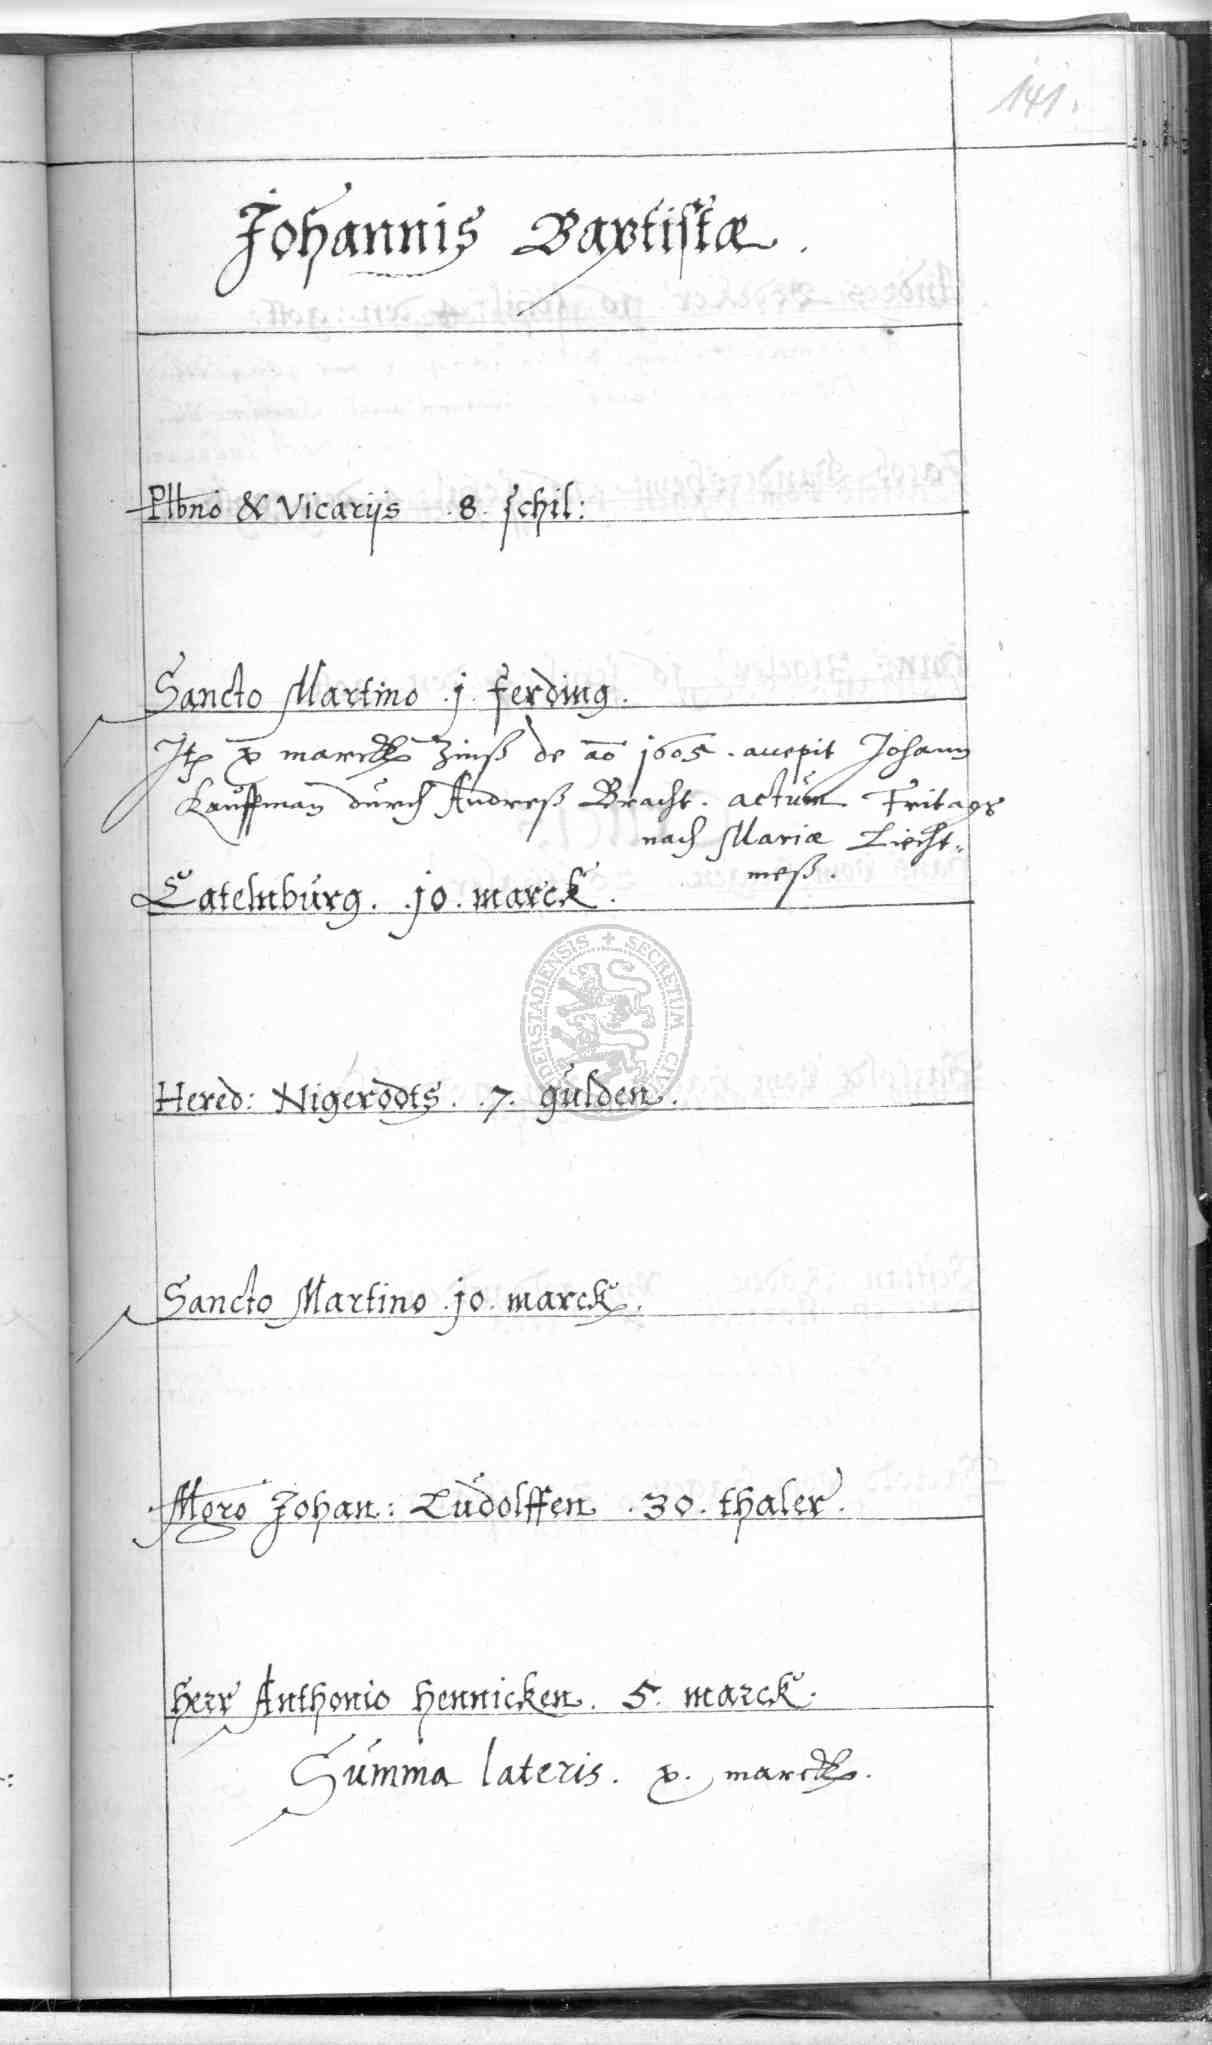 141.
Johannis Baptistæ.
Plbno & Vicarijs .8. schil:
Sancto Martino .j. ferding.
Itp x marck Zinß de ao 1605. accepit Johann
Kauffman durch Andreß Bracht. actum Fritags
nach Mariæ Liecht=
meß.
Catelnburg. .10. marck.
DERSTADIENSIS + SECRETUM CIVI
Hered: Nigerodts. .7. gulden.
Sancto Martino .10. marck.
Mgro Johan: Ludolffen .30. thaler.
Herr Anthonio Hennicken. 5. marck.
Summa lateris. x. marck.